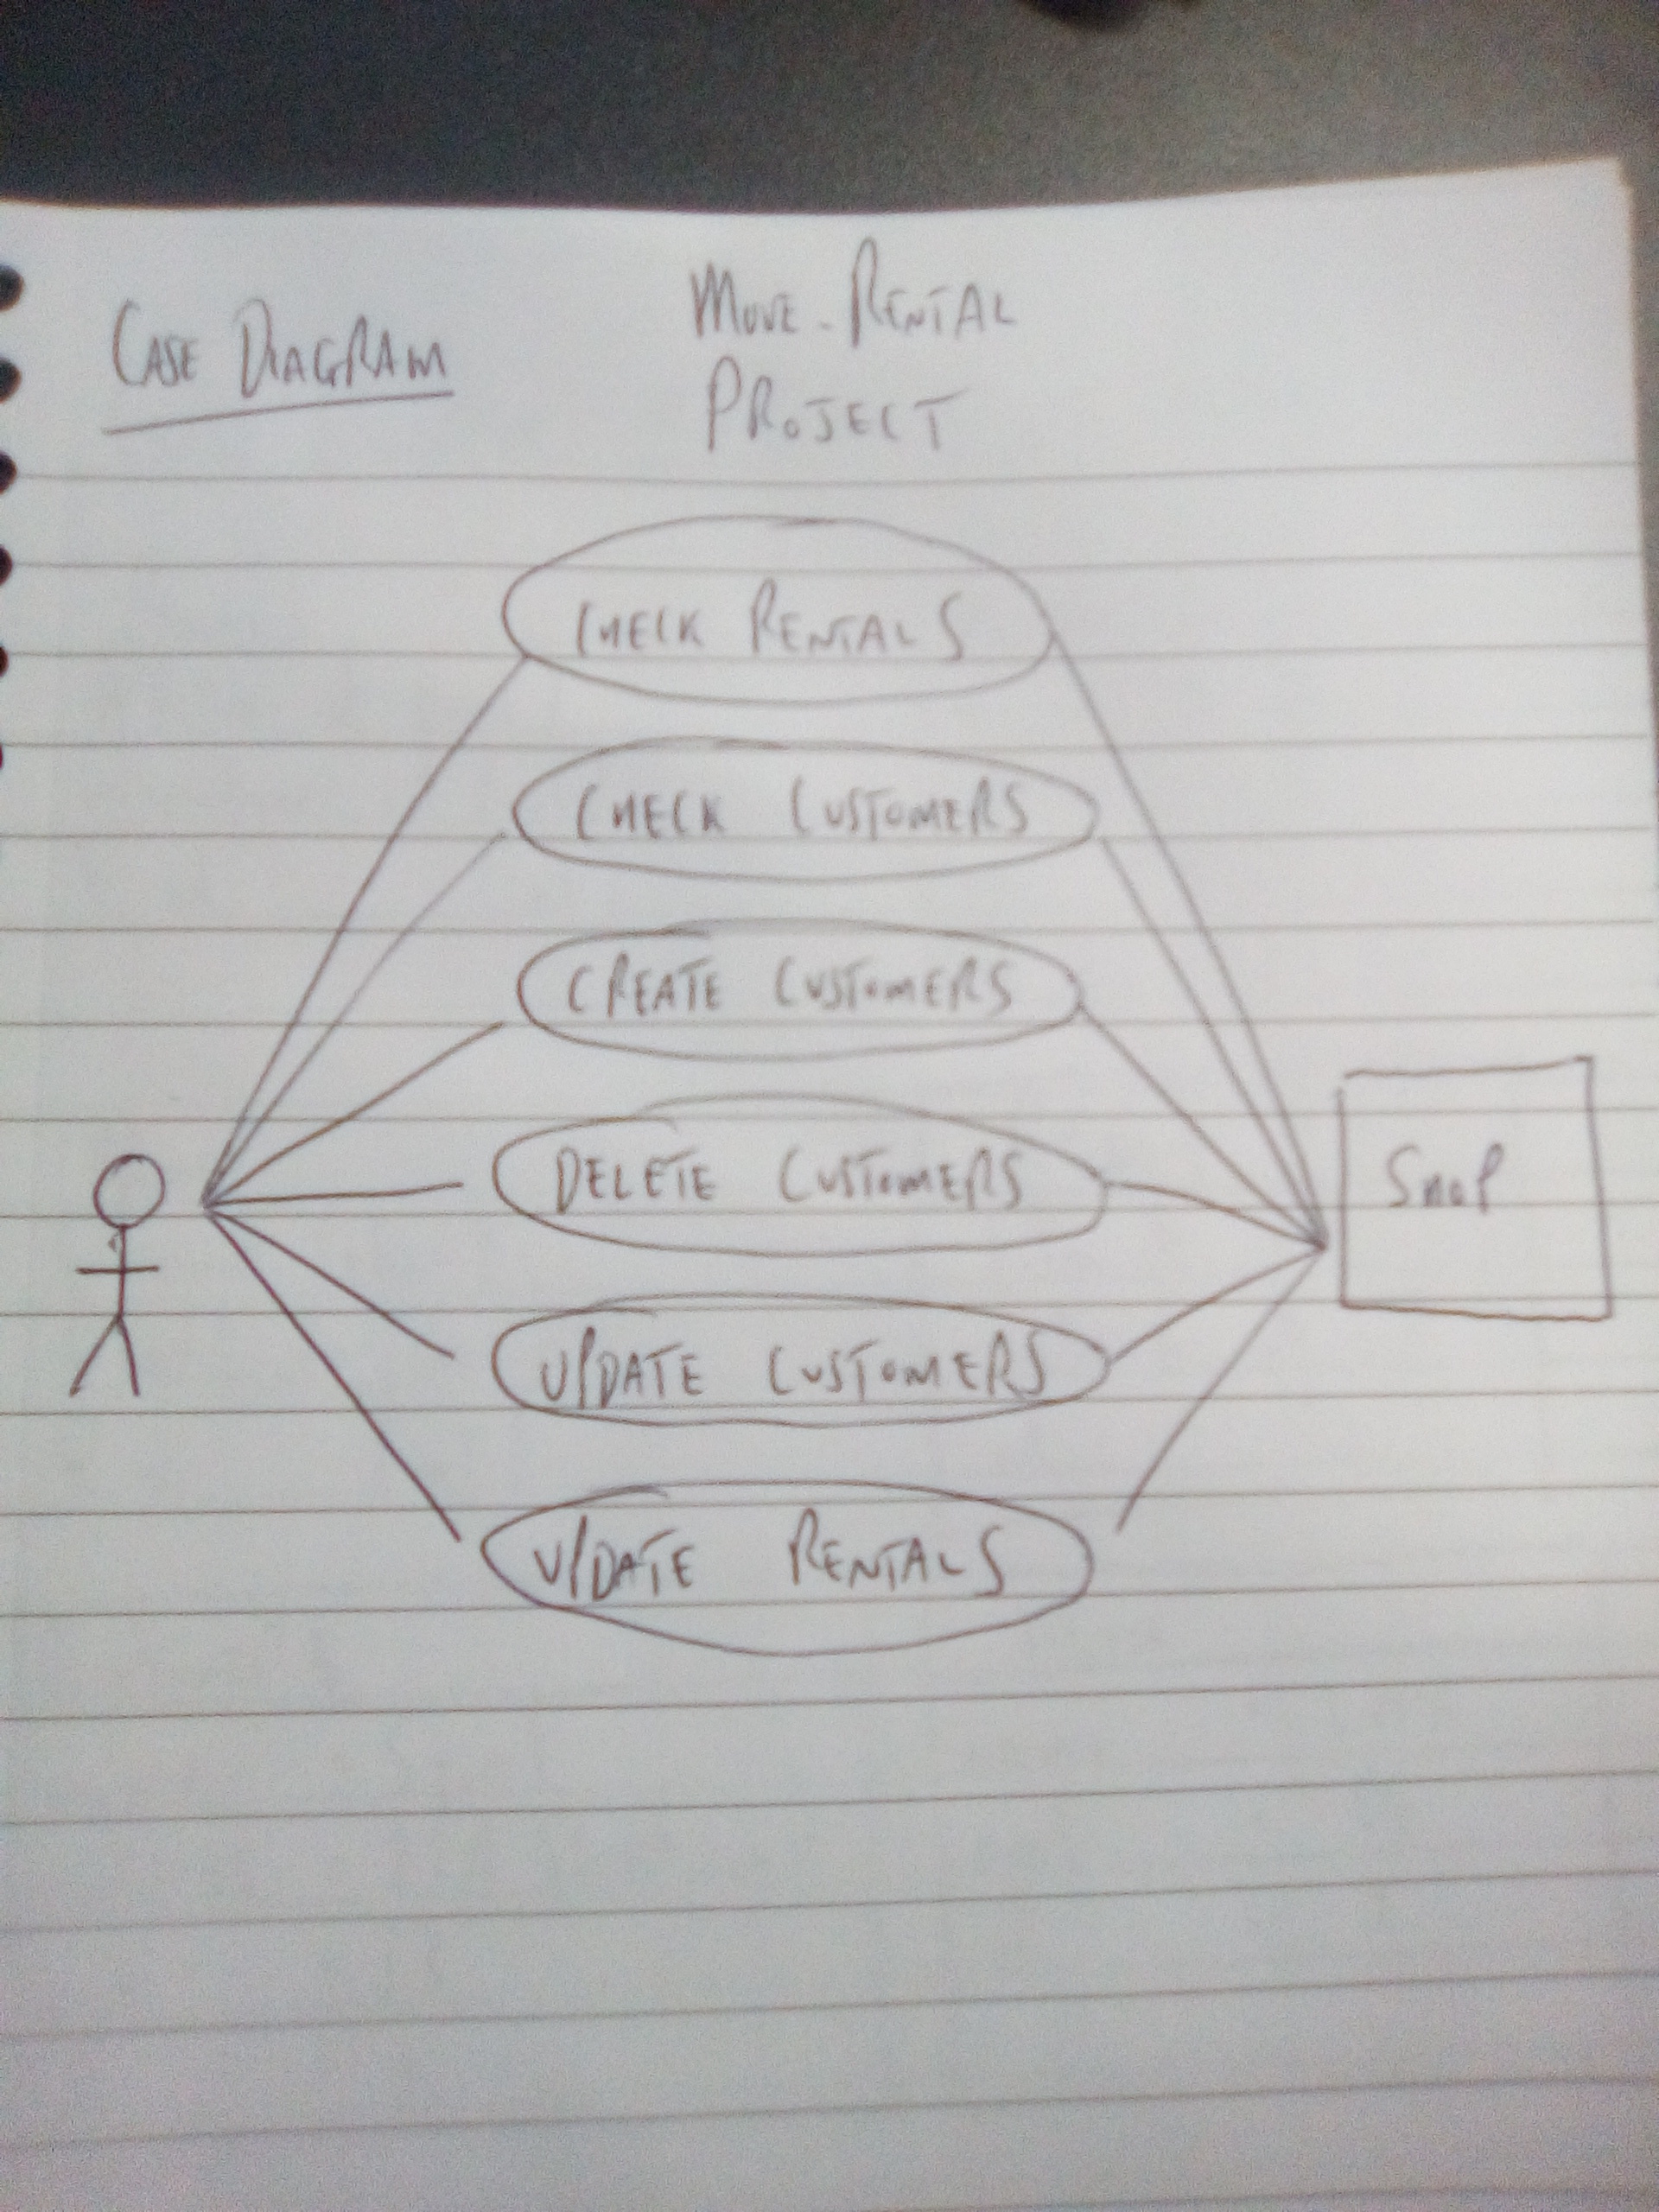 CASE DIAGRAM
MOVE-RENTAL
PROJECT
CHECK RENTALS
CHECK CUSTOMERS
CREATE CUSTOMERS
DELETE CUSTOMERS
SHOP
UPDATE CUSTOMERS
UPDATE RENTALS